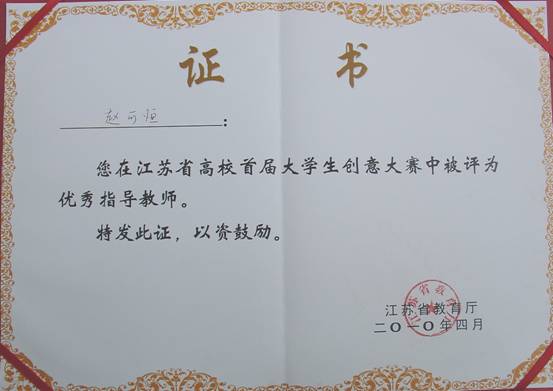 证 书
赵可恒：
您在江苏省高校首届大学生创意大赛中被评为
优秀指导教师。
特发此证，以资鼓励。
江苏省教育厅
二〇一〇年四月